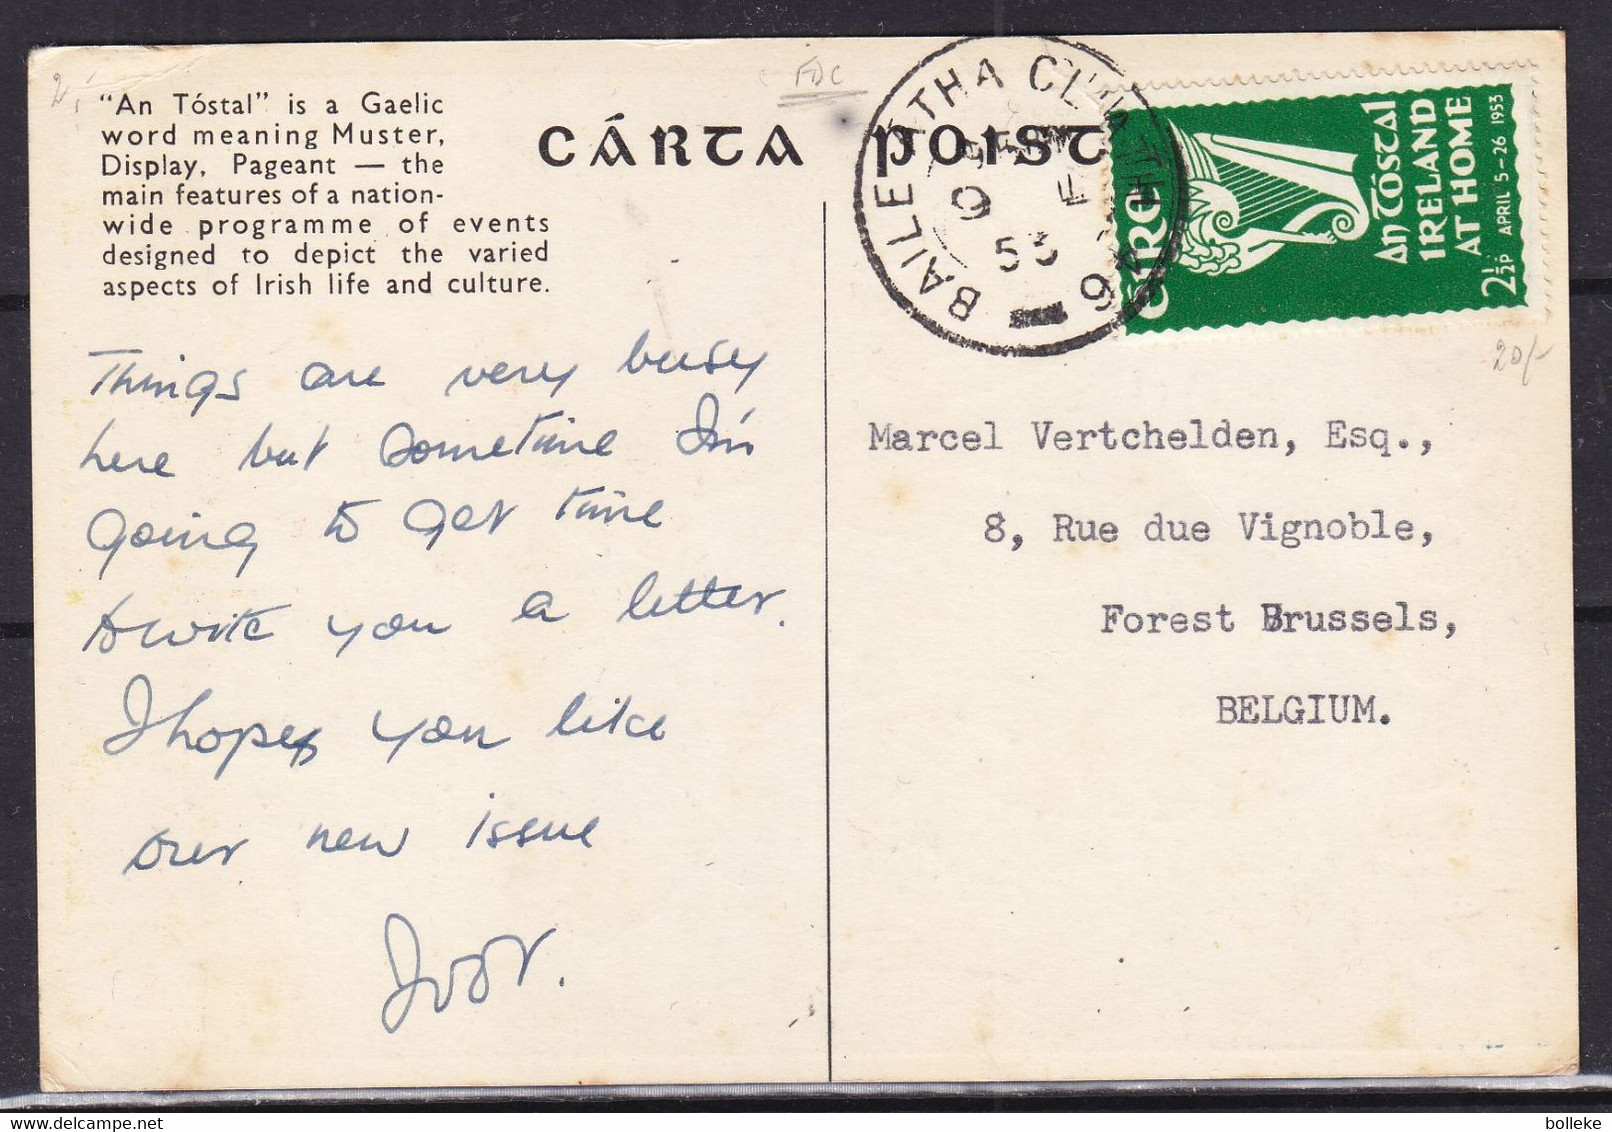 2,
"An Tóstal" is a Gaelic
word meaning Muster,
Display, Pageant — the
main features of a nation-
wide programme of events
designed to depict the varied
aspects of Irish life and culture.
FDC
CÁRTA POIST
BAILE ÁTHA CLIATH
9 FE
53
Éire
An Tóstal
IRELAND
AT HOME
2½P APRIL 5-26 1953
20/-
Things are very busy
here but sometime I'm
going to get time
to write you a letter.
I hope you like
our new issue
Marcel Vertchelden, Esq.,
8, Rue due Vignoble,
Forest Brussels,
BELGIUM.
bolleke